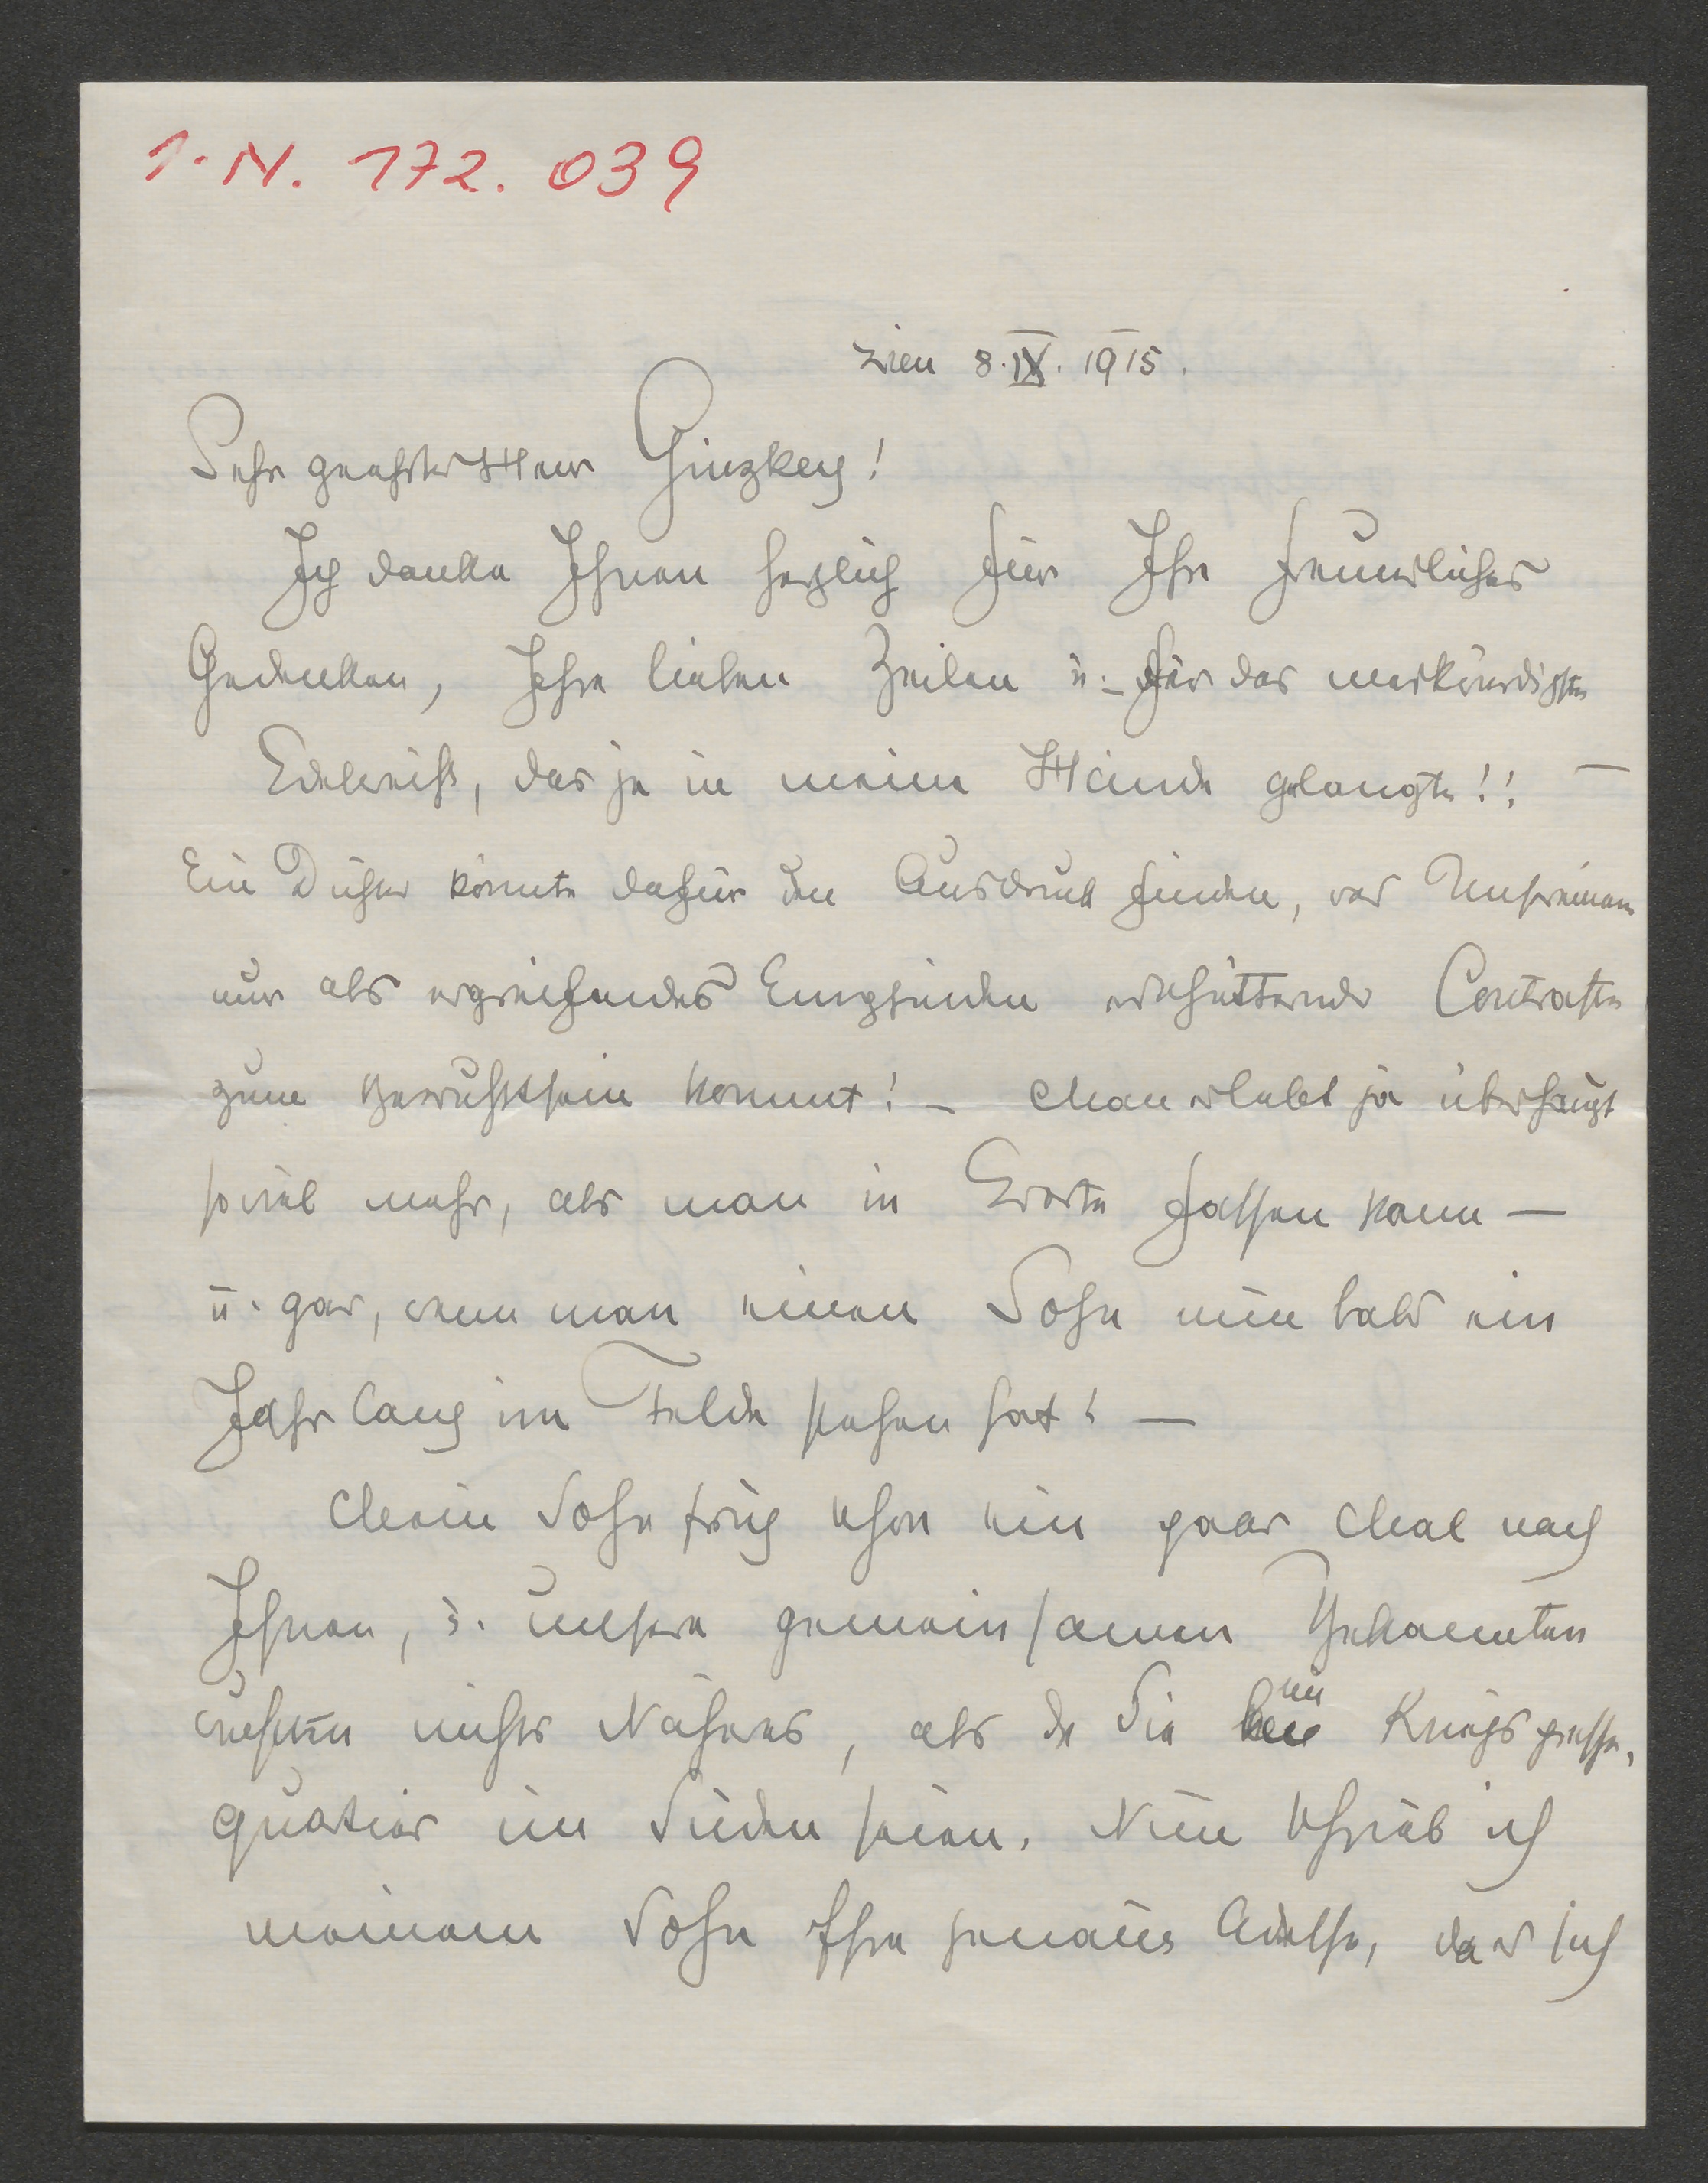 I. N. 172.039
Wien 8. IX. 1915.
Sehr geehrter Herr Ginzkey!
Ich danke Ihnen herzlich für Ihr freundliches
Gedenken, Ihre lieben Zeilen u. – für das merkwürdigste
Edelweiß, das je in meine Hände gelangte!! –
Ein Dichter könnte dafür den Ausdruck finden, was Unsereinem
nur als ergreifendes Empfinden erschütternder Contraste
zum Bewußtsein kommt! – Man erlebt ja überhaupt
soviel mehr, als man in Worte fassen kann –
u. gar, wenn man einen Sohn nun bald ein
Jahr lang im Felde stehen hat! –
Mein Sohn frug schon ein paar Mal nach
Ihnen, u. unsere gemeinsamen Bekannten
wußten nichts Näheres, als daß Sie im Kriegspresse-
quatier im Süden seien. Nun schrieb ich
meinem Sohn Ihre genaue Adresse, da er sich